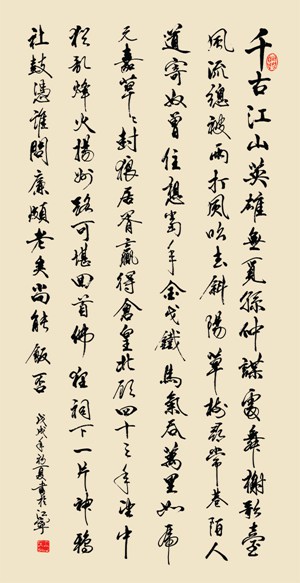 千古江山英雄無覓孫仲謀處舞榭歌臺
風流總被雨打風吹去斜陽草樹尋常巷陌人
道寄奴曾住想當年金戈鐵馬氣吞萬里如虎
元嘉草々封狼居胥贏得倉皇北顧四十三年望中
猶記烽火揚州路可堪回首佛狸祠下一片神鴉
社鼓憑誰問廉頗老矣尚能飯否
戊戌年初夏書於江寧